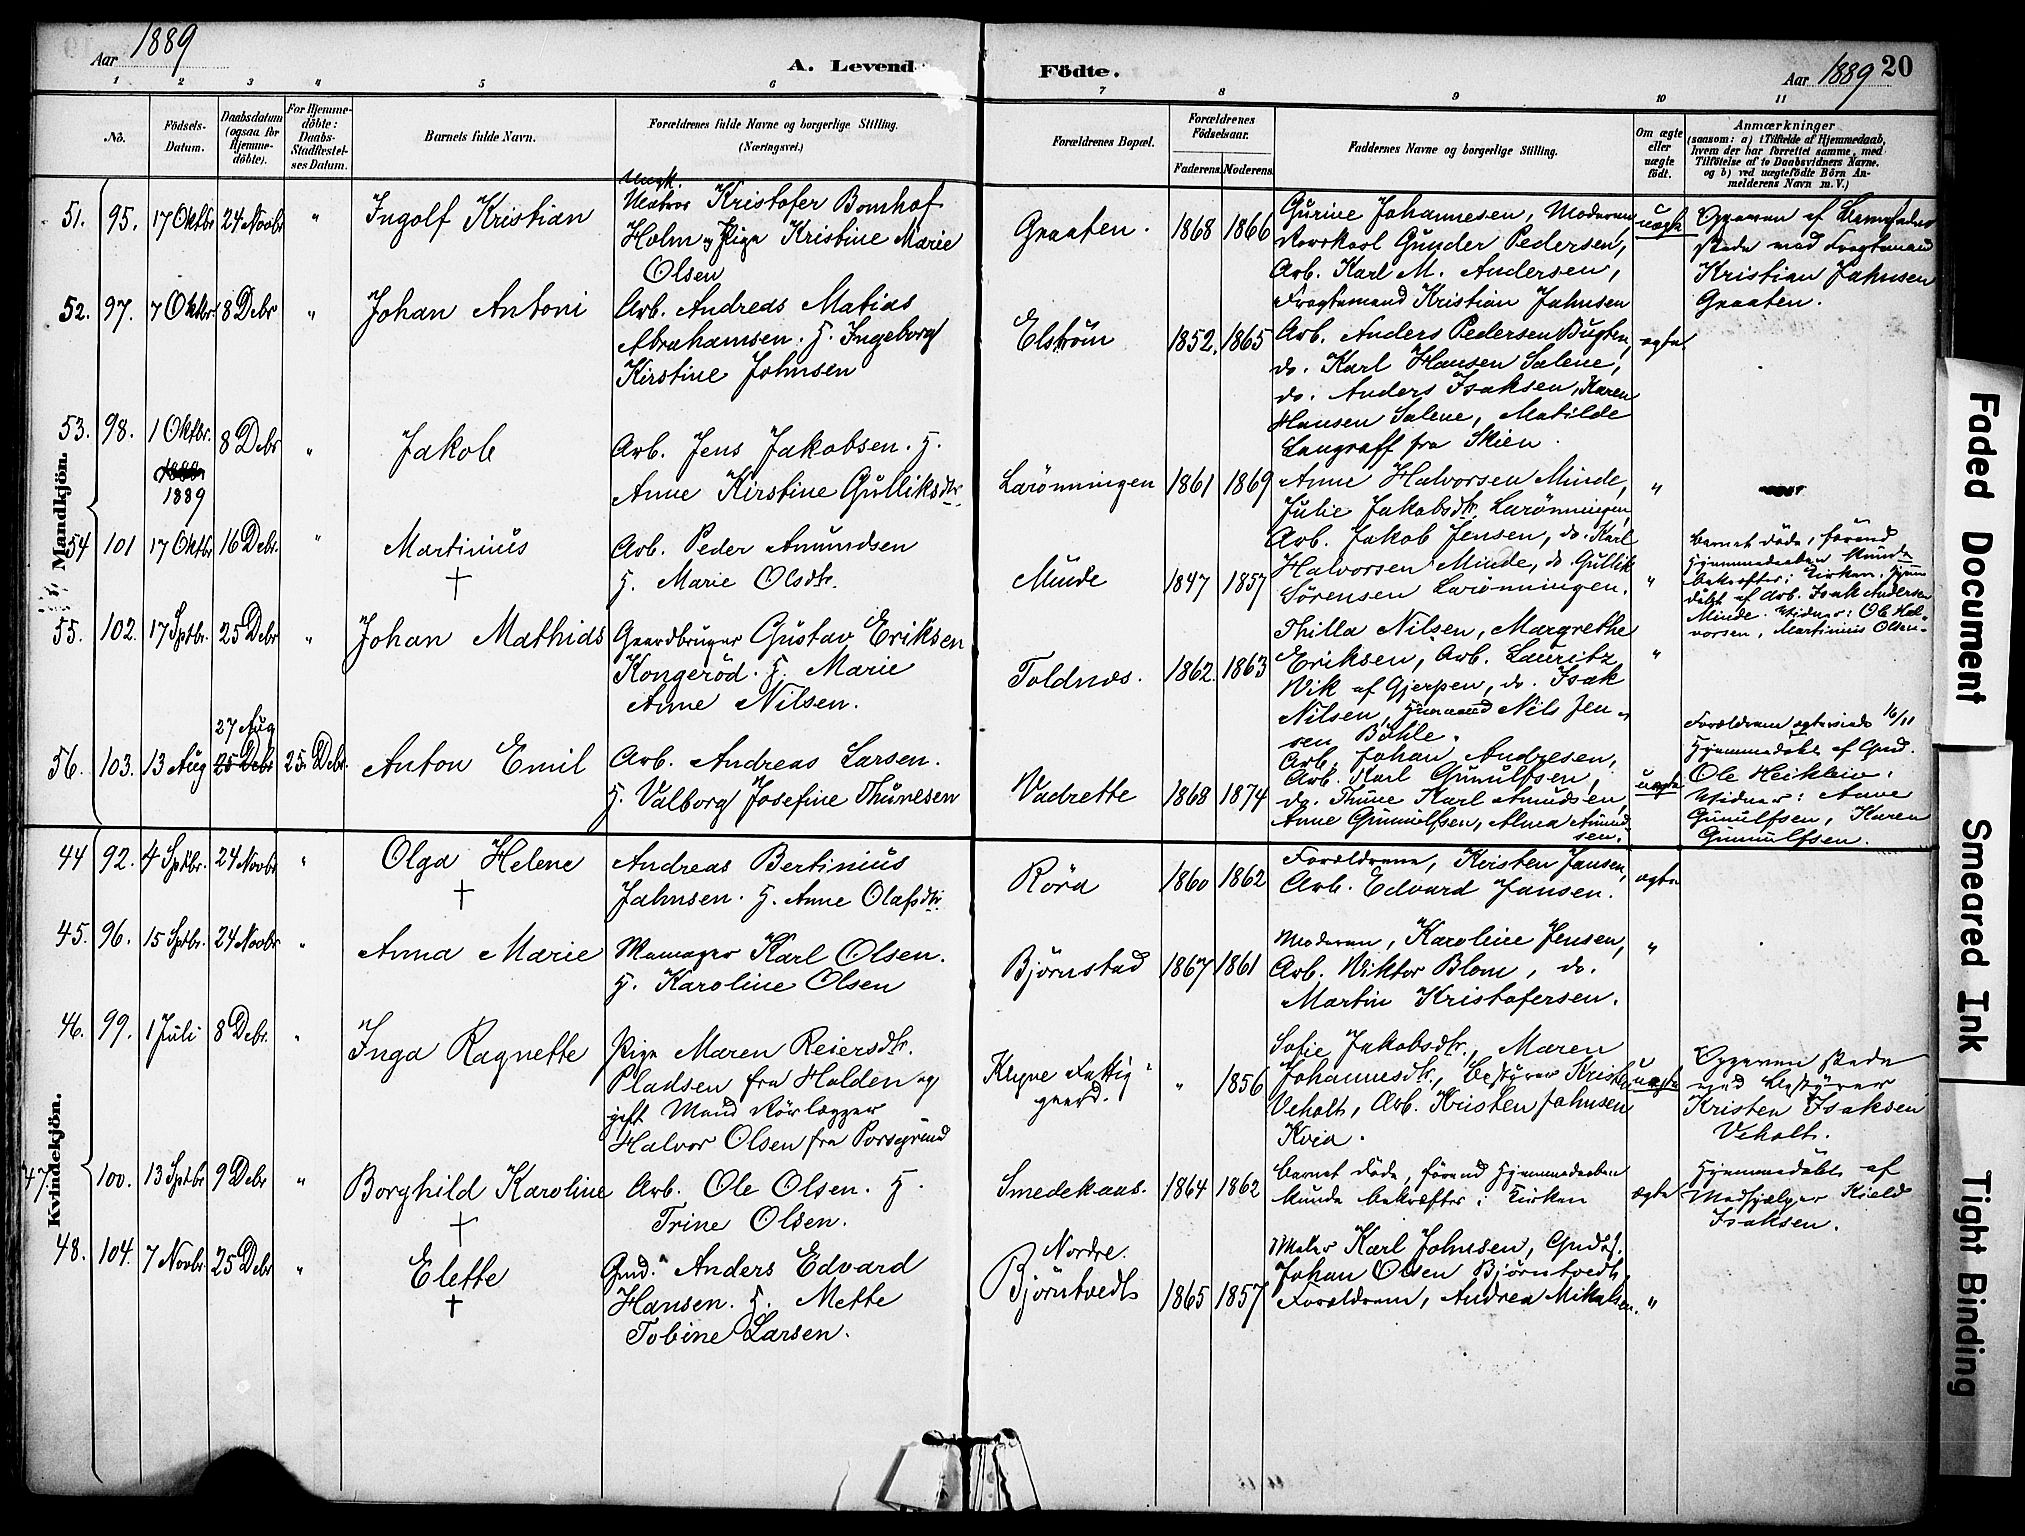 Aar 1889
A. Levend
Födte.
Aar 1889 20
1 2 3 4 5 6 7 8 9 10 11
No.
Födsels-Datum.
Daabsdatum (ogsaa for Hjemme-döbte).
For Hjemme-döbte: Daabs-Stadfæstel-ses Datum.
Barnets fulde Navn.
Forældrenes fulde Navne og borgerlige Stilling.
(Næringsvei.)
Forældrenes Bopæl.
Forældrenes Födselsaar.
Faderens. Moderens.
Faddernes Navne og borgerlige Stilling.
Om ægte eller uægte födt.
Anmærkninger
(saasom: a) i Tilfælde af Hjemmedaab,
hvem der har forrettet samme, med
Tilföielse af to Daabsvidners Navne.
og b) ved uægtefödte Börn An-
melderens Navn m. V.)
Mandkjön.
51. 95. 17 Oktbr 24 Novbr "
Ingolf Kristian
Ungk.
Matros Kristofer Bomhof
Holm og Pige Kristine Marie
Olsen
Graaten. 1868 1866
Gurine Johannesen, Moderen,
Gunder Pedersen,
Arb. Karl M. Andersen,
Fragtemand Kristian Jahnsen
uægte
Opgaven af Barnefader
stede med Fragtemand
Kristian Jahnsen
Graaten.
52. 97. 7 Oktbr 8 Debr "
Johan Antoni
Arb. Andreas Matias
Abrahamsen. H. Ingeborg
Kirstine Johnsen
Elström 1852. 1865
Arb. Anders Pedersen Bugten,
do. Karl Hansen Salene,
do. Anders Isaksen, Karen
Hansen Salene, Matilde
Langraff fra Skien.
ægte
53. 98. 1 Oktbr. 1889 8 Debr "
Jakob
Arb. Jens Jakobsen. H.
Anne Kirstine Gulliksdtr.
Larönningen 1861 1869
Anne Halvorsen Minde,
Julie Jakobsdtr. Larönningen,
Arb. Jakob Jensen, do. Karl
Halvorsen Minde, do. Gullik
Sörensen Larönningen.
"
54 101 17 Oktbr 16 Debr. "
Martinius
†
Arb. Peder Amundsen
H. Marie Olsdtr.
Minde 1847 1857
"
Barnet döde, förend
Hjemmedaaben kunde
bekræftes i Kirken. Hjem
döbt af Arb. Isak Andersen
Minde. Vidner: Ole Hal-
vorsen, Martinius Olsen.
55. 102. 17 Sptbr. 25 Debr "
Johan Mathias
Gaardbruger Gustav Eriksen
Kongeröd. H. Marie
Anne Nilsen.
Toldnes. 1862. 1863
Thilla Nilsen, Margrethe
Eriksen, Arb. Lauritz
Vik af Gjerpen, do. Isak
Nilsen, Nils Jen-
sen Böhle.
"
56. 103. 13 Aug 27 Aug 25 Debr 25. Debr.
Anton Emil
Arb. Andreas Larsen.
H. Valborg Josefine Thunesen
Vadrette 1868 1874
Arb. Johan Andresen,
Arb. Karl Gunulfsen,
do. Thune Karl Amundsen,
Anne Gunnulfsen, Alma Amund-
sen.
uægte
Forældrene ægteviede 16/11
Hjemmedöbt af Gmd.
Ole Heikleiv.
Vidner: Anne
Gunulfsen, Karen
Gunnulfsen.
Kvindekjön.
44 92. 4 Sptbr. 24 Novbr "
Olga Helene
†
Andreas Bertinius
Jahnsen. H. Anne Olafsdtr.
Röra 1860 1862
Forældrene, Kristen Jansen,
Arb. Edvard Jansen.
ægte
45. 96. 15 Sptbr. 24 Novbr "
Anna Marie
Karl Olsen.
H. Karoline Olsen
Björnstad 1867 1861
Moderen, Karoline Jensen,
Arb. Viktor Blom, do.
Martin Kristofersen.
"
46. 99. 1 Juli 8 Debr. "
Inga Ragnette
Pige Maren Reiersdtr.
Pladsen fra Holden og
gift Mand Rörlægger
Halvor Olsen fra Porsgrund
Klyve Fattig-
gaard. " 1856
Sofie Jakobsdtr., Maren
Johannesdtr., Bestyrer Kristen
Veholt, Arb. Kristen Jahnsen
Kvia.
uægte
Opgaven stede
med Bestyrer
Kristen Isaksen
Veholt.
47. 100. 13 Sptbr 9 Debr "
Borghild Karoline
†
Arb. Ole Olsen. H.
Trine Olsen.
Smedekaas. 1864 1862
Barnet döde, förend Hjemmedaaben
kunde bekræftes i Kirken
ægte
Hjemmedöbt af
Medhjælper Kield
Isaksen.
48. 104. 7 Novbr. 25 Debr "
Elette
†
Gmd. Anders Edvard
Hansen. H. Mette
Tobine Larsen.
Nordre.
Björntvedt 1865 1857
Maler Karl Johnsen, Gmds.
Johan Olsen Björntvedt,
Forældrene, Andrea Mikalsen.
"
Faded Document
Smeared Ink
Tight Binding